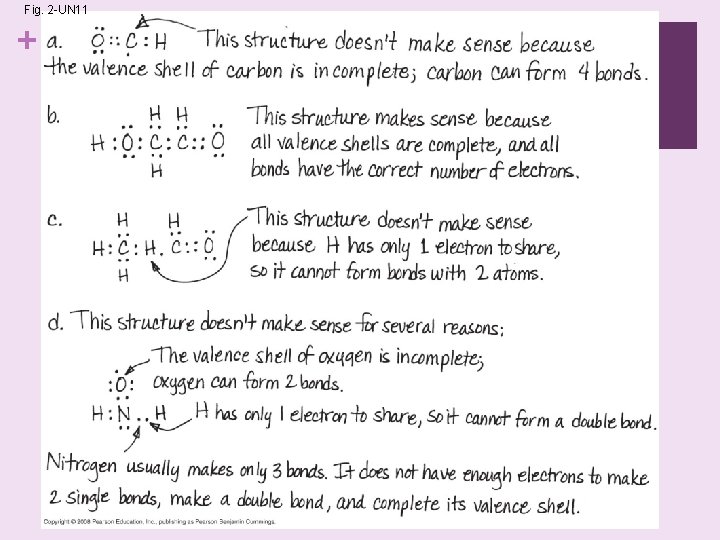 Fig. 2-UN11
+
a. O :: C : H This structure doesn't make sense because
the valence shell of carbon is incomplete; carbon can form 4 bonds.
b. H H This structure makes sense because
H : O : C : C :: O all valence shells are complete, and all
H bonds have the correct number of electrons.
c. H H This structure doesn't make sense
H : C : H . C :: O because H has only 1 electron to share,
H so it cannot form bonds with 2 atoms.
d. This structure doesn't make sense for several reasons:
The valence shell of oxygen is incomplete;
: O : oxygen can form 2 bonds.
H : N .. H H has only 1 electron to share, so it cannot form a double bond.
Nitrogen usually makes only 3 bonds. It does not have enough electrons to make
2 single bonds, make a double bond, and complete its valence shell.
Copyright © 2008 Pearson Education, Inc., publishing as Pearson Benjamin Cummings.